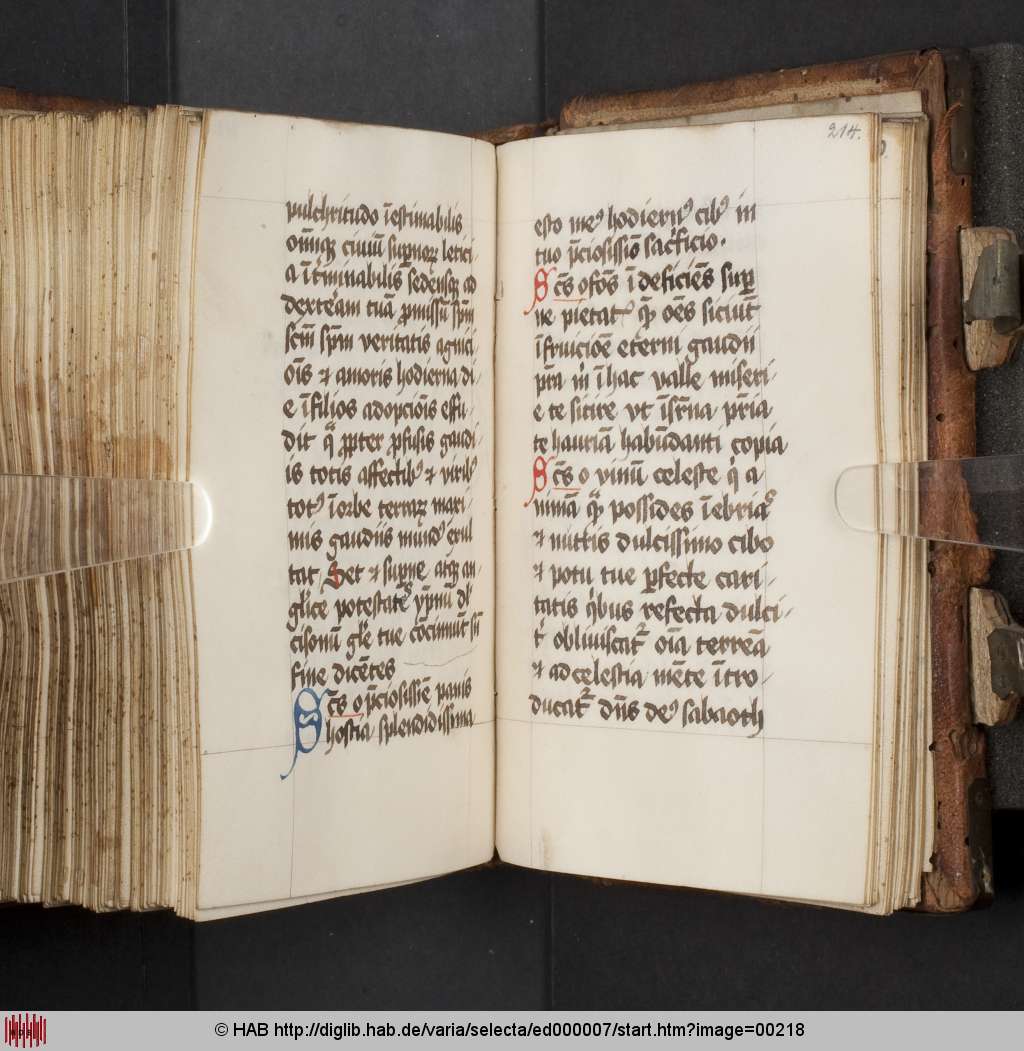 pulchritudo īestimabilis
om̄iqꝫ ciuiū sup̄noꝝ letici⸗
a īt̓minabilis sedensqꝫ ad
dexterām tuā ꝓmissū sp̄m
scm̄ sp̄m veritatis agnici⸗
ōis ⁊ amoris hodierna di⸗
e ī filios adopciōis effu⸗
dit ꝓpter ꝓfusis gaudi⸗
is totis affectibꝰ ⁊ viribꝰ
totꝰ ī orbe terraꝝ
mis gaudiis mūdꝰ exul
tat Set ⁊ sup̄ne atqꝫ an⸗
glīce potestates ypnū dl̄
cisonū glīe tue cōcinūt sn̄
fine dicētes
Scs̄ o p̄ciosissīe panis
hostia splendidissima
214.
esto meꝰ hodiernꝰ cibꝰ in
tuo p̄ciosissīo sacͥficio.
Scs̄ o fōs īdeficiēs suꝑ
ne pietatꝭ quē oēs siciūt
ī fruicioē eterni gaudii
pr̄a m̄ ī hac valle miseri⸗
e te sitire vt īsr̄na pr̄ia
te hauriā habūdanti copia
Scs̄ o vinū celeste qͥ a⸗
nimā quā possides īebriaˢ
⁊ nutris dulcissimo cibo
⁊ potu tue ꝑfecte cari⸗
tatis qͥbus refecta dulci⸗
tͬ obliuiscatͬ oīa terreā
⁊ ad celestia mēte ītro⸗
ducatͬ dn̄s deꝰ sabaoth
© HAB http://diglib.hab.de/varia/selecta/ed000007/start.htm?image=00218